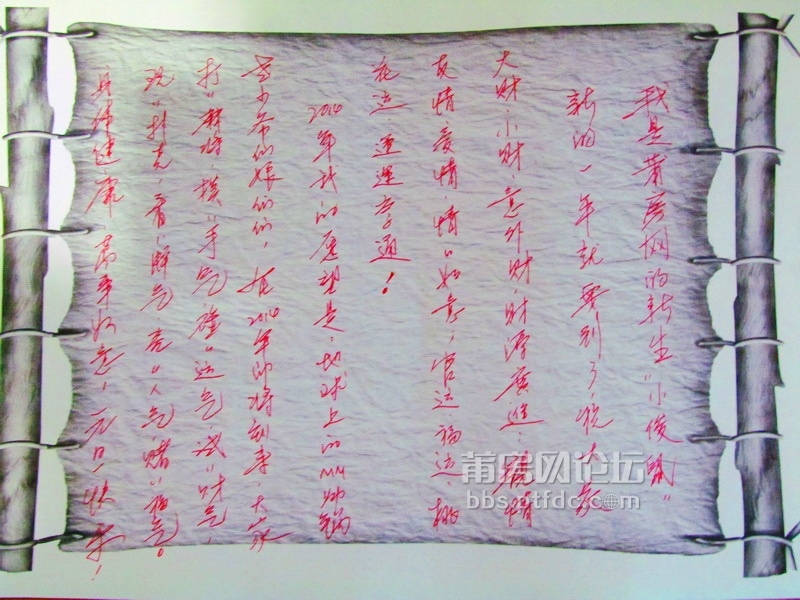 我是莆房网的新生"小俊鼠"
新的一年就要到了,祝大家
大财·小财·意外财·财源广进·亲情
友情爱情·情"如意,官运·福运·桃
花运 运运亨通!
2014年我的愿望是:地球上的MM帅锅
爷们娘们们,在2014年即将到来·大家
打"麻将 摸"手气 碰"运气·试"财气,
玩"扑克·看"牌气 亮"人气·赌"福气。
身体健康 万事如意!元旦快乐!
莆房网论坛
bbs.ptfdc.com